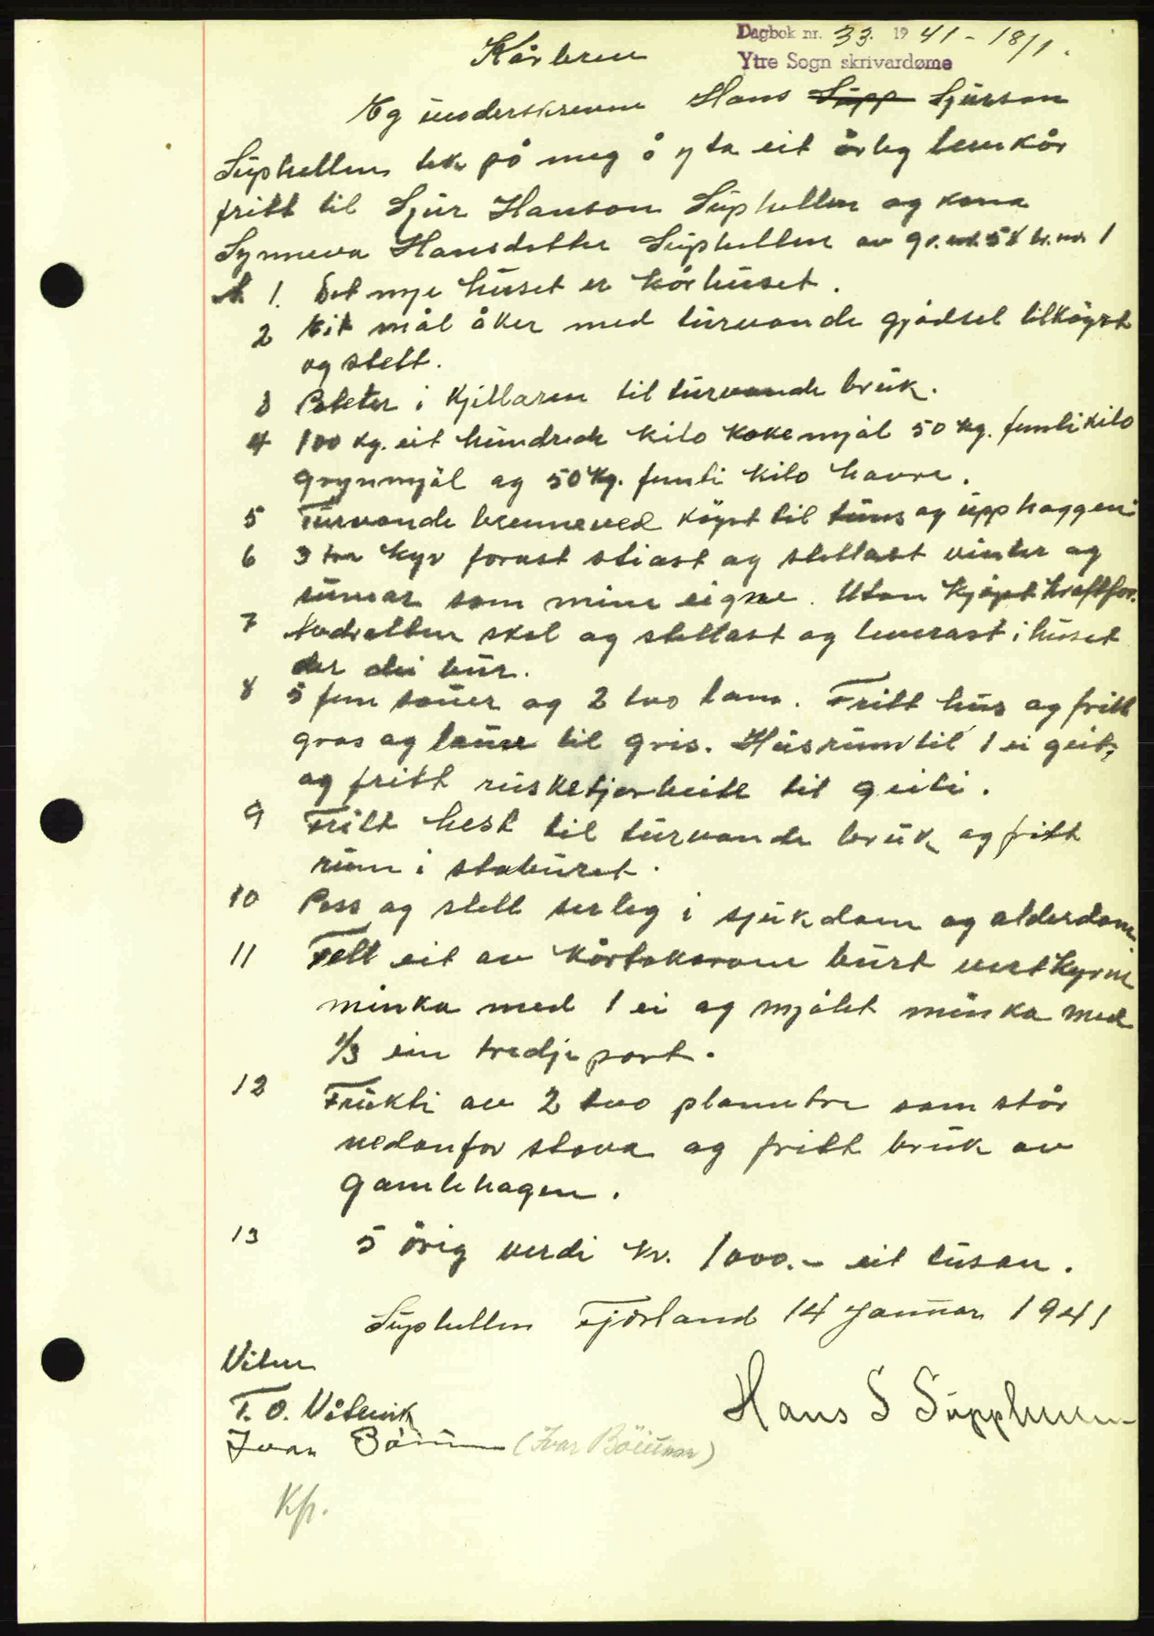 Dagbok nr. 33. 1941 - 18/1.
Ytre Sogn skrivardøme
Kårbrev
Eg underskrevne Hans Supp Sjurson
Suphellen tek på meg å yta eit årleg levekår
fritt til Sjur Hanson Suphellen og kona
Synneva Hansdotter Suphellen av gr.nr. 58 br.nr. 1
1. Det nye huset er kårhuset.
2 Eit mål åker med turvande gjødsel tilkøyrt
og stelt.
3 Poteter i kjellaren til turvande bruk.
4 100 kg. eit hundrede kilo kokemjøl 50 kg. femti kilo
grynmjøl og 50 kg. femti kilo havre.
5 Turvande brenneved køyrt til tuns og upphoggen.
6 3 tre kyr forast stiast og stellast vinter og
sumar som mine eigne. Utan kjøpt kraftfor.
7 Avdrotten skal og stellast og leverast i huset
der dei bur.
8 5 fem sauer og 2 tvo lam. Fritt hus og fritt
gras og lauv til gris. Husrum til 1 ei geit,
og fritt rusketjorbeite til geiti.
9 Fritt hest til turvande bruk og fritt
rum i staburet.
10 Pass og stell serleg i sjukdom og alderdom
11 Fell eit av kårtakarane burt vert kyrne
minka med 1 ei og mjølet minka med
1/3 ein tredje part.
12 Frukti av 2 tvo plomtre som står
nedanfor stova og fritt bruk av
gamlehagen.
13 5 årig verdi kr. 1000.- eit tusan.
Suphellen Fjørland 14 Januar 1941
Vitne
T. O. Våtevik
Hans S Supphellen
Ivar Böium (Ivar Böiumar)
Kp.